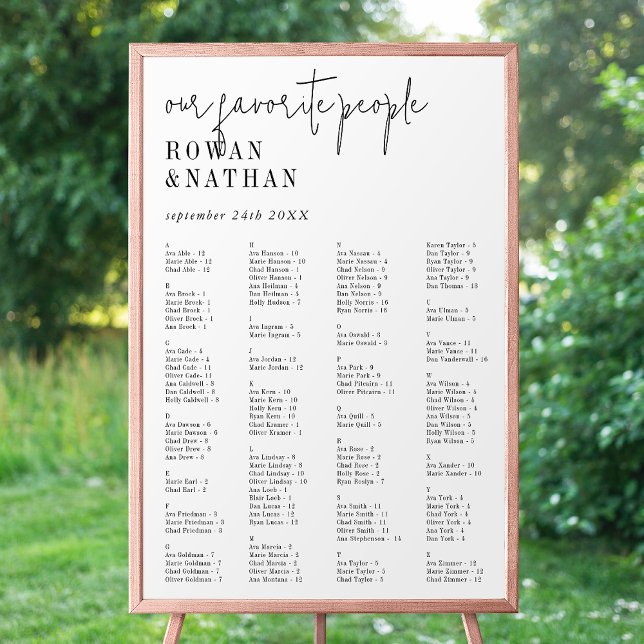 our favorite people
ROWAN
&NATHAN
september 24th 20XX
A
Ava Able - 12
Marie Able - 12
Chad Able - 12
B
Ava Brock - 1
Marie Brock- 1
Chad Brock - 1
Oliver Brock - 1
Ana Brock - 1
G
Ava Cade - 4
Marie Cade - 4
Chad Cade - 11
Oliver Cade- 11
Ana Caldwell - 8
Dan Caldwell - 8
Holly Caldwell - 8
D
Ava Dawson - 6
Marie Dawson - 6
Chad Drew - 8
Oliver Drew - 8
Ana Drew - 8
E
Marie Earl - 2
Chad Earl - 2
F
Ava Friedman - 3
Marie Friedman - 3
Chad Friedman - 3
G
Ava Goldman - 7
Marie Goldman - 7
Chad Goldman - 7
Oliver Goldman - 7
H
Ava Hanson - 10
Marie Hanson - 10
Chad Hanson - 1
Oliver Hansou - 1
Ana Heilman - 4
Dan Heilman - 4
Holly Hudson - 7
I
Ava Ingram - 5
Marie Ingram - 5
J
Ava Jordan - 12
Marie Jordan - 12
K
Ava Kern - 10
Marie Kern - 10
Holly Kern - 10
Ryan Kern - 10
Chad Kramer - 1
Oliver Kramer - 1
L
Ava Lindsay - 8
Marie Lindsay - 8
Chad Lindsay - 10
Oliver Lindsay - 10
Ana Loeb - 1
Blair Loeb - 1
Dan Lucas - 12
Ana Lucas - 12
Ryan Lucas - 12
M
Ava Marcia - 2
Marie Marcia - 2
Chad Marcia - 2
Oliver Marcia - 2
Ana Montana - 12
N
Ava Nassau - 4
Marie Nassau - 4
Chad Nelson - 9
Oliver Nelson - 9
Ana Nelson - 9
Dan Nelson - 9
Holly Norris - 16
Ryan Norris - 16
O
Ava Oswald - 3
Marie Oswald - 3
P
Ava Park - 9
Marie Park - 9
Chad Pitcairn - 11
Oliver Pitcairn - 11
Q
Ava Quill - 5
Marie Quill - 5
R
Ava Rose - 2
Marie Rose - 2
Chad Rose - 2
Holly Rose - 2
Ryan Roslyn - 7
S
Ava Smith - 11
Marie Smith - 11
Chad Smith - 11
Oliver Smith - 11
Ana Stephenson - 14
T
Ava Taylor - 5
Marie Taylor - 5
Chad Taylor - 5
Karen Taylor - 5
Dan Taylor - 5
Ryan Taylor - 9
Oliver Taylor - 9
Ana Taylor - 9
Dan Thomas - 13
U
Ava Ulman - 5
Marie Ulman - 5
V
Ava Vance - 11
Marie Vance - 11
Dan Vanderwall - 16
W
Ava Wilson - 4
Marie Wilson - 5
Chad Wilson - 5
Oliver Wilson - 4
Ana Wilson - 5
Dan Wilson - 5
Holly Wilson - 5
Ryan Wilson - 5
X
Ava Xander - 10
Marie Xander - 10
Y
Ava York - 4
Marie York - 4
Chad York - 4
Oliver York - 4
Ana York - 4
Dan York - 4
Z
Ava Zimmer - 12
Marie Zimmer - 12
Chad Zimmer - 12